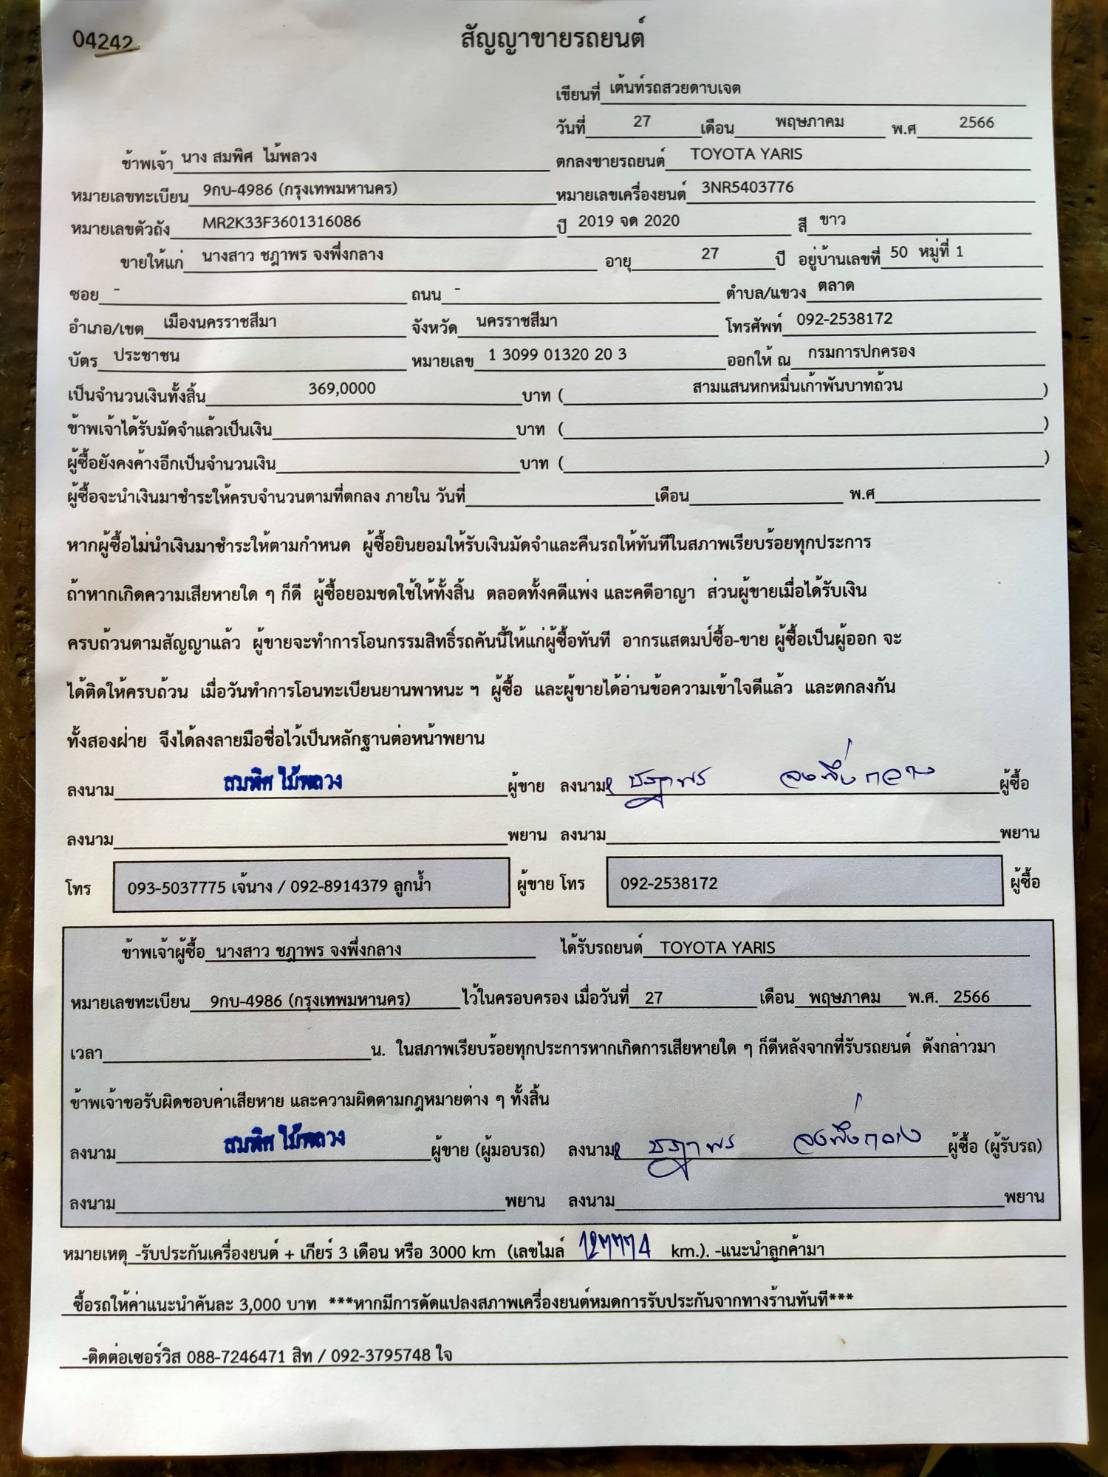 04242
สัญญาขายรถยนต์
เขียนที่ เต้นท์รถสวยดาบเจต
วันที่ 27 เดือน พฤษภาคม พ.ศ 2566
ข้าพเจ้า นาง สมพิศ ไม้พลวง ตกลงขายรถยนต์ TOYOTA YARIS
หมายเลขทะเบียน 9กบ-4986 (กรุงเทพมหานคร) หมายเลขเครื่องยนต์ 3NR5403776
หมายเลขตัวถัง MR2K33F3601316086 ปี 2019 จด 2020 สี ขาว
ขายให้แก่ นางสาว ชฎาพร จงพึ่งกลาง อายุ 27 ปี อยู่บ้านเลขที่ 50 หมู่ที่ 1
ซอย - ถนน - ตำบล/แขวง ตลาด
อำเภอ/เขต เมืองนครราชสีมา จังหวัด นครราชสีมา โทรศัพท์ 092-2538172
บัตร ประชาชน หมายเลข 1 3099 01320 20 3 ออกให้ ณ กรมการปกครอง
เป็นจำนวนเงินทั้งสิ้น 369,0000 บาท ( สามแสนหกหมื่นเก้าพันบาทถ้วน )
ข้าพเจ้าได้รับมัดจำแล้วเป็นเงิน บาท ( )
ผู้ซื้อยังคงค้างอีกเป็นจำนวนเงิน บาท ( )
ผู้ซื้อจะนำเงินมาชำระให้ครบจำนวนตามที่ตกลง ภายใน วันที่ เดือน พ.ศ
หากผู้ซื้อไม่นำเงินมาชำระให้ตามกำหนด ผู้ซื้อยินยอมให้รับเงินมัดจำและคืนรถให้ทันทีในสภาพเรียบร้อยทุกประการ
ถ้าหากเกิดความเสียหายใด ๆ ก็ดี ผู้ซื้อยอมชดใช้ให้ทั้งสิ้น ตลอดทั้งคดีแพ่ง และคดีอาญา ส่วนผู้ขายเมื่อได้รับเงิน
ครบถ้วนตามสัญญาแล้ว ผู้ขายจะทำการโอนกรรมสิทธิ์รถคันนี้ให้แก่ผู้ซื้อทันที อากรแสตมป์ซื้อ-ขาย ผู้ซื้อเป็นผู้ออก จะ
ได้ติดให้ครบถ้วน เมื่อวันทำการโอนทะเบียนยานพาหนะ ฯ ผู้ซื้อ และผู้ขายได้อ่านข้อความเข้าใจดีแล้ว และตกลงกัน
ทั้งสองฝ่าย จึงได้ลงลายมือชื่อไว้เป็นหลักฐานต่อหน้าพยาน
ลงนาม สมพิศ ไม้พลวง ผู้ขาย ลงนาม ชฎาพร จงพึ่งกลาง ผู้ซื้อ
ลงนาม พยาน ลงนาม พยาน
โทร 093-5037775 เจ้นาง / 092-8914379 ลูกน้ำ ผู้ขาย โทร 092-2538172 ผู้ซื้อ
ข้าพเจ้าผู้ซื้อ นางสาว ชฎาพร จงพึ่งกลาง ได้รับรถยนต์ TOYOTA YARIS
หมายเลขทะเบียน 9กบ-4986 (กรุงเทพมหานคร) ไว้ในครอบครอง เมื่อวันที่ 27 เดือน พฤษภาคม พ.ศ. 2566
เวลา น. ในสภาพเรียบร้อยทุกประการหากเกิดการเสียหายใด ๆ ก็ดีหลังจากที่รับรถยนต์ ดังกล่าวมา
ข้าพเจ้าขอรับผิดชอบค่าเสียหาย และความผิดตามกฎหมายต่าง ๆ ทั้งสิ้น
ลงนาม สมพิศ ไม้พลวง ผู้ขาย (ผู้มอบรถ) ลงนาม ชฎาพร จงพึ่งกลาง ผู้ซื้อ (ผู้รับรถ)
ลงนาม พยาน ลงนาม พยาน
หมายเหตุ -รับประกันเครื่องยนต์ + เกียร์ 3 เดือน หรือ 3000 km (เลขไมล์ km.). -แนะนำลูกค้ามา
ซื้อรถให้ค่าแนะนำคันละ 3,000 บาท ***หากมีการดัดแปลงสภาพเครื่องยนต์หมดการรับประกันจากทางร้านทันที***
-ติดต่อเซอร์วิส 088-7246471 สิท / 092-3795748 ใจ